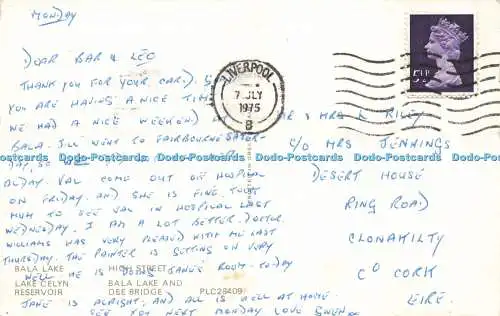 MONDAY
DEAR BAR & LEO
THANK YOU FOR YOUR CARD. SO
YOU ARE HAVING A NICE TIME
WE HAD A NICE WEEKEND AT
BALA. JILL WENT TO FAIRBOURNE SATUR-
DAY, SO
ALDAY. VAL COME OUT OF HOSPITAL
ON FRIDAY. AND SHE IS FINE. TOOK
MUM TO SEE VAL IN HOSPITAL LAST
WEDNESDAY. I AM A LOT BETTER. DOCTOR
WILLIAMS WAS VERY PLEASED WITH ME LAST
THURSDAY. THE PAINTER IS GETTING ON VERY
WELL HE IS DOING JANE'S ROOM TO-DAY
JANE IS ALRIGHT, AND ALL IS WELL AT HOME
SEE YOU NEXT MONDAY LOVE GWEN
BALA LAKE
LAKE CELYN
RESERVOIR
HIGH STREET
BALA LAKE AND
DEE BRIDGE
PLC28409
LIVERPOOL
7 JLY
1975
8
MR & MRS L RILEY
C/O MRS JENNINGS
DESERT HOUSE
RING ROAD
CLONAKILTY
CO CORK
EIRE.
Dodo-Postcards Dodo-Postcards Dodo-Postcards Dodo-Postcards Dodo-Postcards